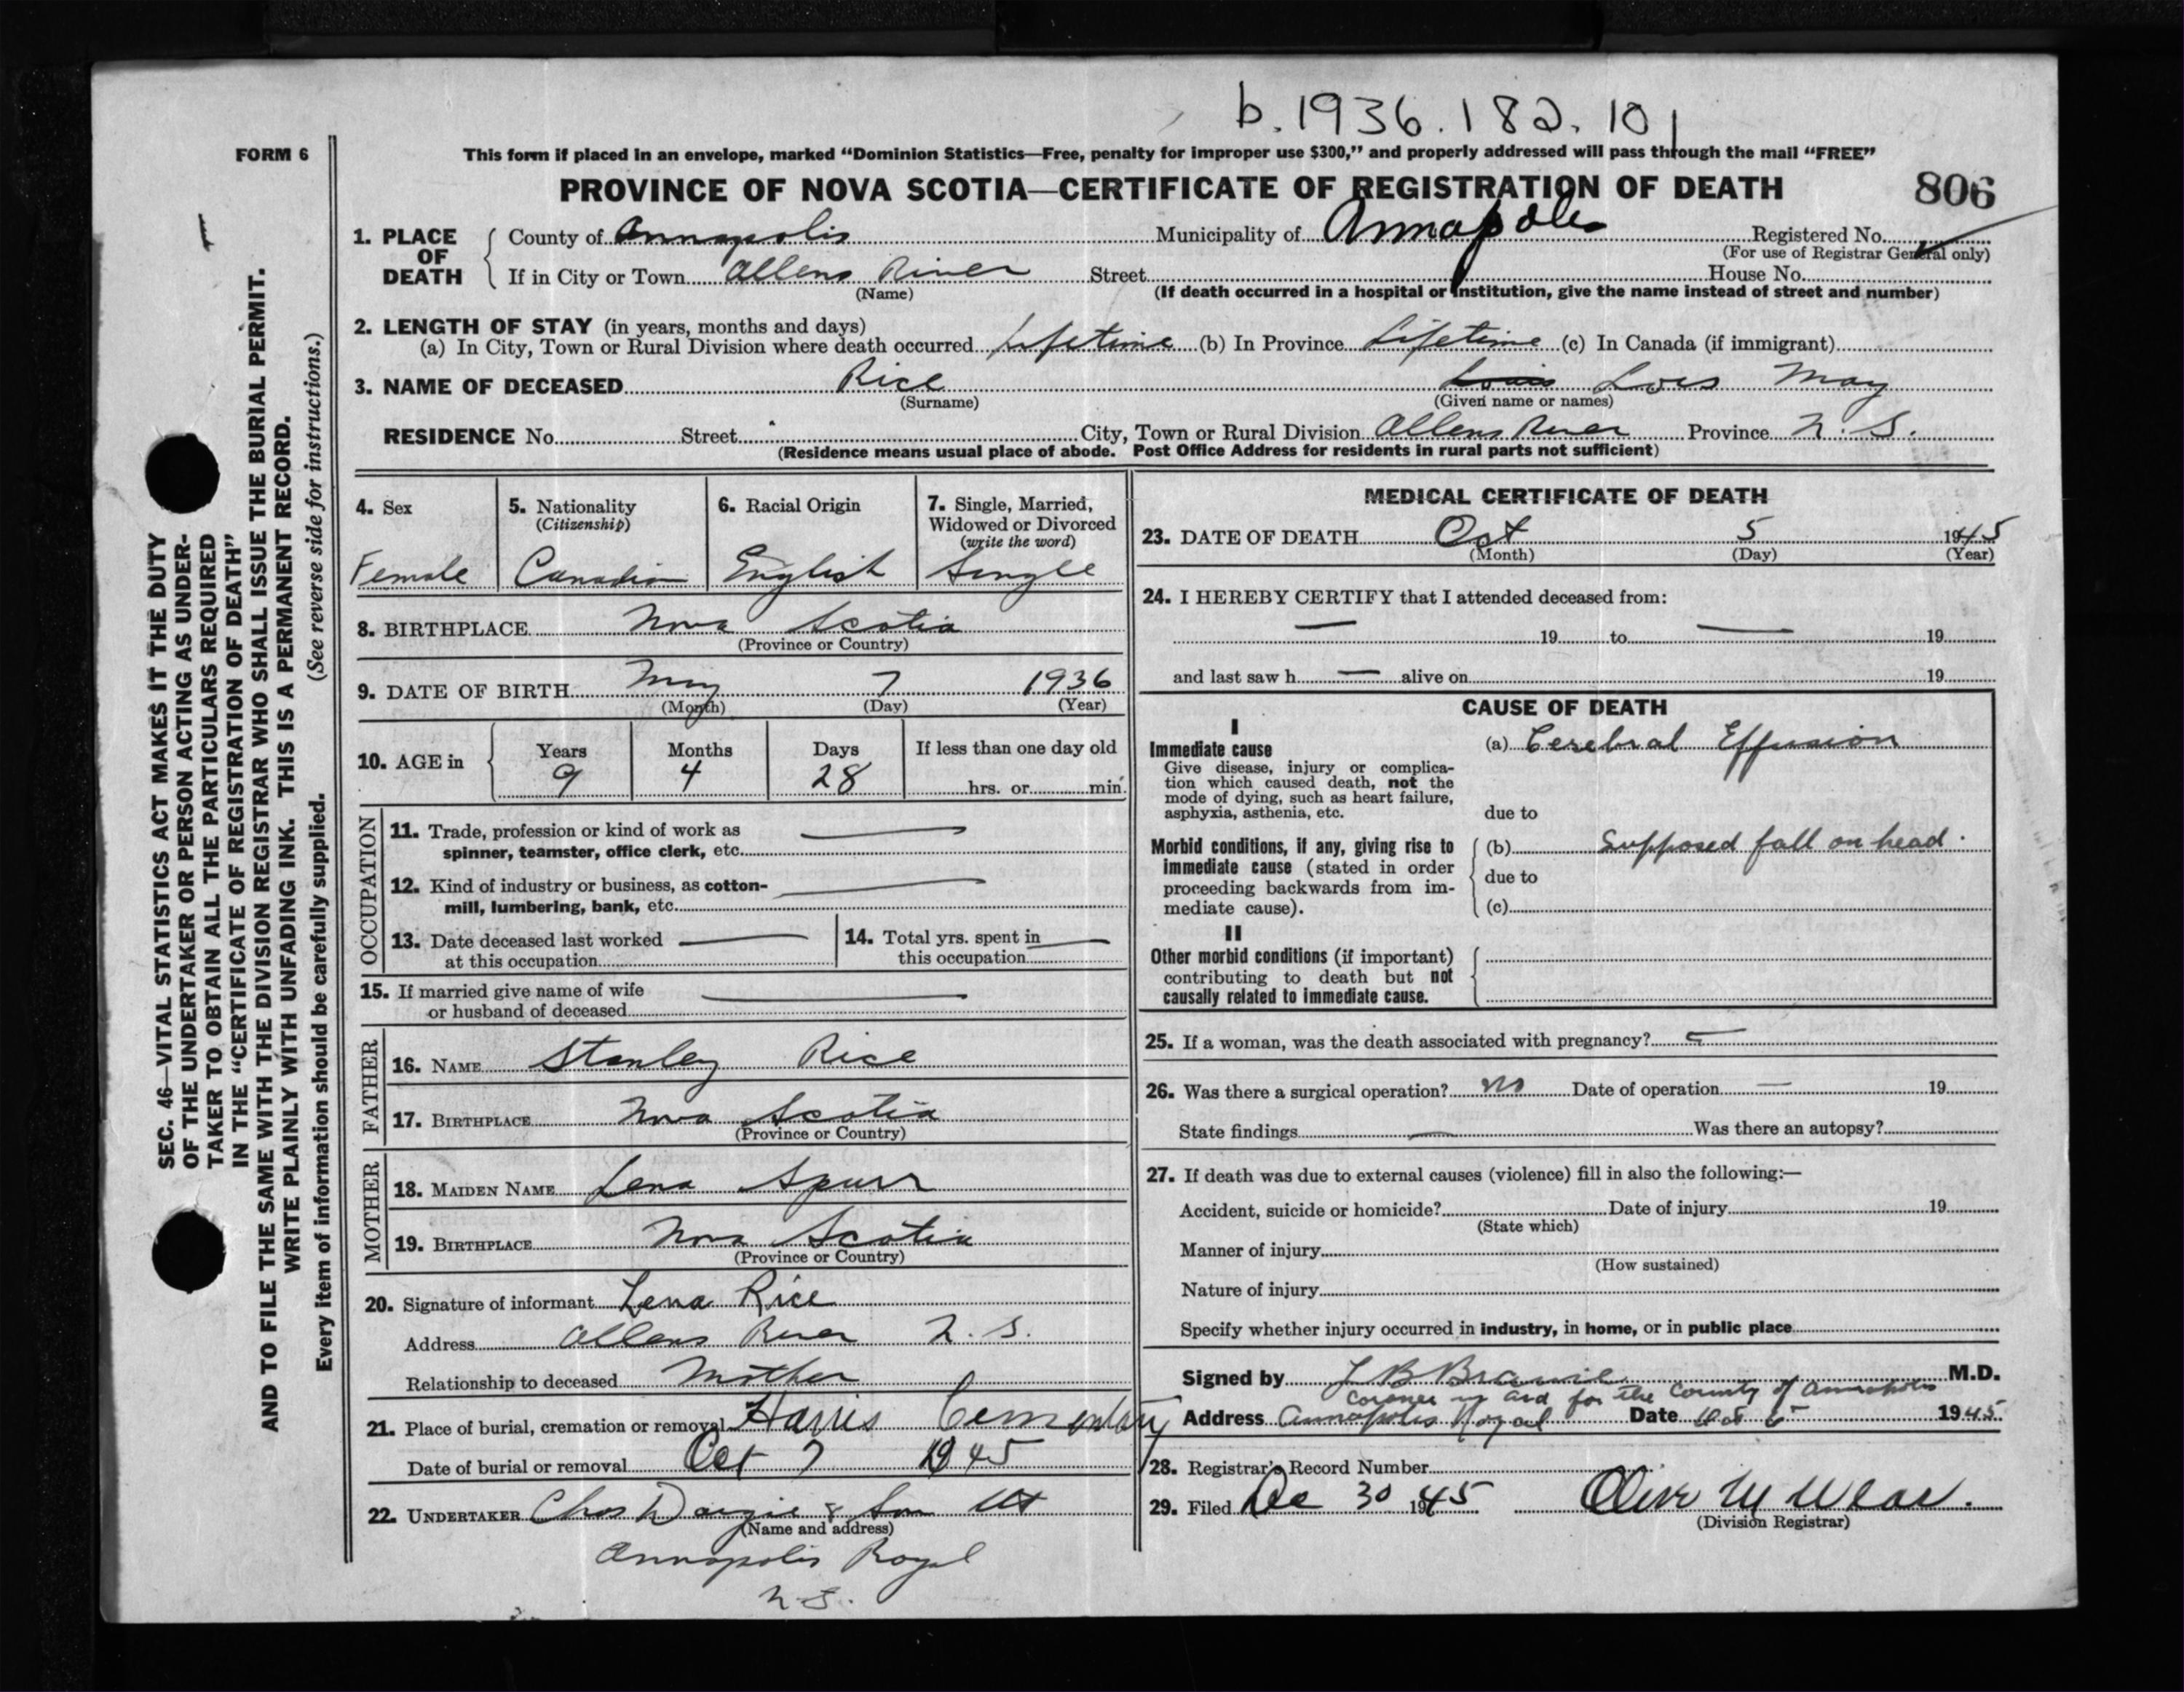 b.1936.182.101
FORM 6
This form if placed in an envelope, marked "Dominion Statistics—Free, penalty for improper use $300," and properly addressed will pass through the mail "FREE"
PROVINCE OF NOVA SCOTIA—CERTIFICATE OF REGISTRATION OF DEATH
806
1. PLACE OF DEATH
County of Annapolis Municipality of Annapolis Registered No.
(For use of Registrar General only)
If in City or Town Allens River Street House No.
(Name) (If death occurred in a hospital or institution, give the name instead of street and number)
2. LENGTH OF STAY (in years, months and days)
(a) In City, Town or Rural Division where death occurred Lifetime (b) In Province Lifetime (c) In Canada (if immigrant)
3. NAME OF DECEASED Rice Lois May
(Surname) (Given name or names)
RESIDENCE No. Street City, Town or Rural Division Allens River Province N. S.
(Residence means usual place of abode. Post Office Address for residents in rural parts not sufficient)
SEC. 46—VITAL STATISTICS ACT MAKES IT THE DUTY
OF THE UNDERTAKER OR PERSON ACTING AS UNDER-
TAKER TO OBTAIN ALL THE PARTICULARS REQUIRED
IN THE "CERTIFICATE OF REGISTRATION OF DEATH"
AND TO FILE THE SAME WITH THE DIVISION REGISTRAR WHO SHALL ISSUE THE BURIAL PERMIT.
WRITE PLAINLY WITH UNFADING INK. THIS IS A PERMANENT RECORD.
Every item of information should be carefully supplied. (See reverse side for instructions.)
4. Sex
Female
5. Nationality
(Citizenship)
Canadian
6. Racial Origin
English
7. Single, Married,
Widowed or Divorced
(write the word)
Single
8. BIRTHPLACE Nova Scotia
(Province or Country)
9. DATE OF BIRTH May 7 1936
(Month) (Day) (Year)
10. AGE in Years Months Days If less than one day old
9 4 28 hrs. or min.
OCCUPATION
11. Trade, profession or kind of work as
spinner, teamster, office clerk, etc.
12. Kind of industry or business, as cotton-
mill, lumbering, bank, etc.
13. Date deceased last worked
at this occupation
14. Total yrs. spent in
this occupation
15. If married give name of wife
or husband of deceased
FATHER
16. NAME Stanley Rice
17. BIRTHPLACE Nova Scotia
(Province or Country)
MOTHER
18. MAIDEN NAME Lena Spurr
19. BIRTHPLACE Nova Scotia
(Province or Country)
20. Signature of informant Lena Rice
Address Allens River N. S.
Relationship to deceased Mother
21. Place of burial, cremation or removal Harris Cementary
Date of burial or removal Oct 7 1945
22. UNDERTAKER Chas Dargie & Son
(Name and address)
Annapolis Royal
N.S.
MEDICAL CERTIFICATE OF DEATH
23. DATE OF DEATH Oct 5 1945
(Month) (Day) (Year)
24. I HEREBY CERTIFY that I attended deceased from:
— 19 to — 19
and last saw h — alive on 19
CAUSE OF DEATH
I
Immediate cause
Give disease, injury or complica-
tion which caused death, not the
mode of dying, such as heart failure,
asphyxia, asthenia, etc.
(a) Cerebral Effusion
due to
Morbid conditions, if any, giving rise to
immediate cause (stated in order
proceeding backwards from im-
mediate cause).
(b) Supposed fall on head.
due to
(c)
II
Other morbid conditions (if important)
contributing to death but not
causally related to immediate cause.
25. If a woman, was the death associated with pregnancy?
26. Was there a surgical operation? no Date of operation — 19
State findings — Was there an autopsy?
27. If death was due to external causes (violence) fill in also the following:—
Accident, suicide or homicide? Date of injury 19
(State which)
Manner of injury
(How sustained)
Nature of injury
Specify whether injury occurred in industry, in home, or in public place
Signed by L B Braine M.D.
Coroner in and for the County of Annapolis
Address Annapolis Royal Date Oct 6 1945
28. Registrar's Record Number
29. Filed 30 1945 Olive M Wear.
(Division Registrar)